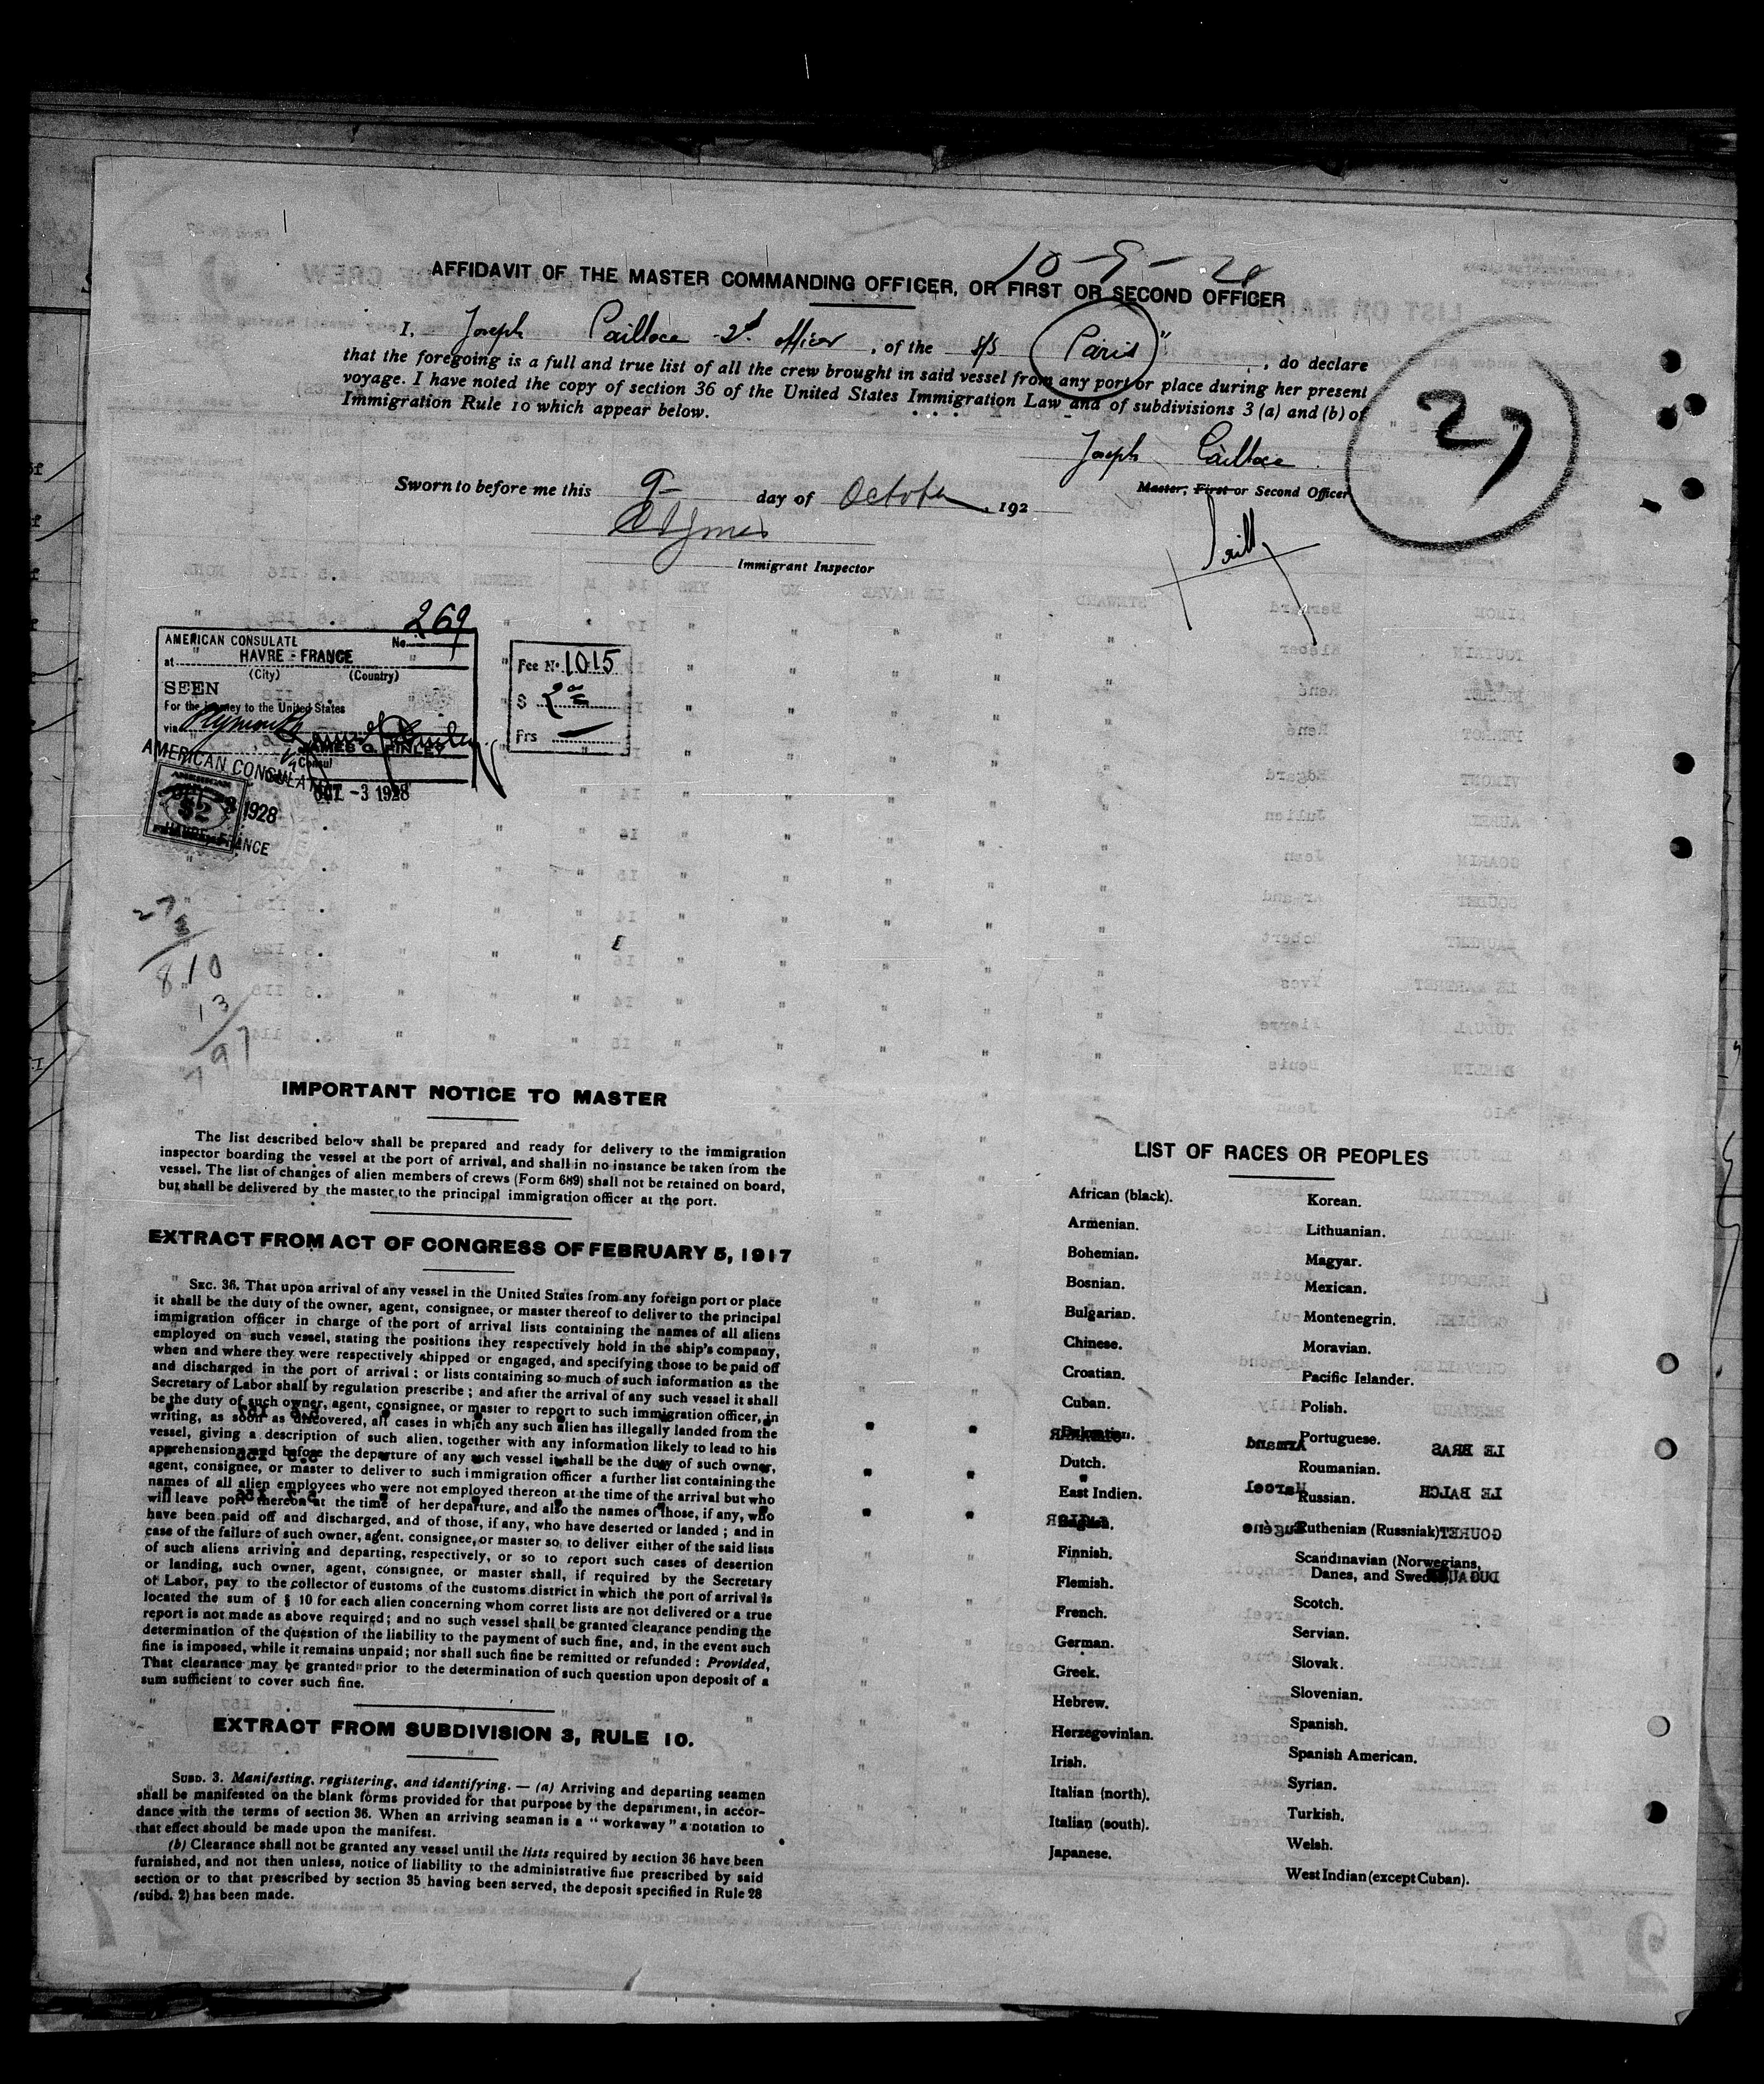 AFFIDAVIT OF THE MASTER COMMANDING OFFICER, OR FIRST OR SECOND OFFICER
I, Joseph Cailloce 2d officer, of the s/s Paris", do declare
that the foregoing is a full and true list of all the crew brought in said vessel from any port or place during her present
voyage. I have noted the copy of section 36 of the United States Immigration Law and of subdivisions 3 (a) and (b) of
Immigration Rule 10 which appear below.
27
Joseph Cailloce
Master, First or Second Officer
Sworn to before me this 9- day of October, 192
Immigrant Inspector
269
AMERICAN CONSULATE No.
at HAVRE - FRANCE
(City) (Country)
SEEN
For the journey to the United States
via Plymouth
JAMES G. FINLEY
Consul
OCT -3 1928
Fee No. 1015
$ 2
Frs
AMERICAN CONSULATE
1928
HAVRE FRANCE
AMERICAN
$2
27
3
810
13
797
IMPORTANT NOTICE TO MASTER
The list described below shall be prepared and ready for delivery to the immigration
inspector boarding the vessel at the port of arrival, and shall in no instance be taken from the
vessel. The list of changes of alien members of crews (Form 689) shall not be retained on board,
but shall be delivered by the master to the principal immigration officer at the port.
EXTRACT FROM ACT OF CONGRESS OF FEBRUARY 5, 1917
SEC. 36. That upon arrival of any vessel in the United States from any foreign port or place
it shall be the duty of the owner, agent, consignee, or master thereof to deliver to the principal
immigration officer in charge of the port of arrival lists containing the names of all aliens
employed on such vessel, stating the positions they respectively hold in the ship's company,
when and where they were respectively shipped or engaged, and specifying those to be paid off
and discharged in the port of arrival : or lists containing so much of such information as the
Secretary of Labor shall by regulation prescribe ; and after the arrival of any such vessel it shall
be the duty of such owner, agent, consignee, or master to report to such immigration officer, in
writing, as soon as discovered, all cases in which any such alien has illegally landed from the
vessel, giving a description of such alien, together with any information likely to lead to his
apprehension; and before the departure of any such vessel it shall be the duty of such owner,
agent, consignee, or master to deliver to such immigration officer a further list containing the
names of all alien employees who were not employed thereon at the time of the arrival but who
will leave port thereon at the time of her departure, and also the names of those, if any, who
have been paid off and discharged, and of those, if any, who have deserted or landed ; and in
case of the failure of such owner, agent, consignee, or master so to deliver either of the said lists
of such aliens arriving and departing, respectively, or so to report such cases of desertion
or landing, such owner, agent, consignee, or master shall, if required by the Secretary
of Labor, pay to the collector of customs of the customs district in which the port of arrival is
located the sum of § 10 for each alien concerning whom corret lists are not delivered or a true
report is not made as above required; and no such vessel shall be granted clearance pending the
determination of the question of the liability to the payment of such fine, and, in the event such
fine is imposed, while it remains unpaid; nor shall such fine be remitted or refunded : Provided,
That clearance may be granted prior to the determination of such question upon deposit of a
sum sufficient to cover such fine.
EXTRACT FROM SUBDIVISION 3, RULE 10.
SUBD. 3. Manifesting, registering, and identifying. — (a) Arriving and departing seamen
shall be manifested on the blank forms provided for that purpose by the department, in accor-
dance with the terms of section 36. When an arriving seaman is a " workaway " a notation to
that effect should be made upon the manifest.
(b) Clearance shall not be granted any vessel until the lists required by section 36 have been
furnished, and not then unless, notice of liability to the administrative fine prescribed by said
section or to that prescribed by section 35 having been served, the deposit specified in Rule 28
(subd. 2) has been made.
LIST OF RACES OR PEOPLES
African (black).
Armenian.
Bohemian.
Bosnian.
Bulgarian.
Chinese.
Croatian.
Cuban.
Dalmatian.
Dutch.
East Indien.
English.
Finnish.
Flemish.
French.
German.
Greek.
Hebrew.
Herzegovinian.
Irish.
Italian (north).
Italian (south).
Japanese.
Korean.
Lithuanian.
Magyar.
Mexican.
Montenegrin.
Moravian.
Pacific Islander.
Polish.
Portuguese.
Roumanian.
Russian.
Ruthenian (Russniak).
Scandinavian (Norwegians,
Danes, and Swedes).
Scotch.
Servian.
Slovak.
Slovenian.
Spanish.
Spanish American.
Syrian.
Turkish.
Welsh.
West Indian (except Cuban).